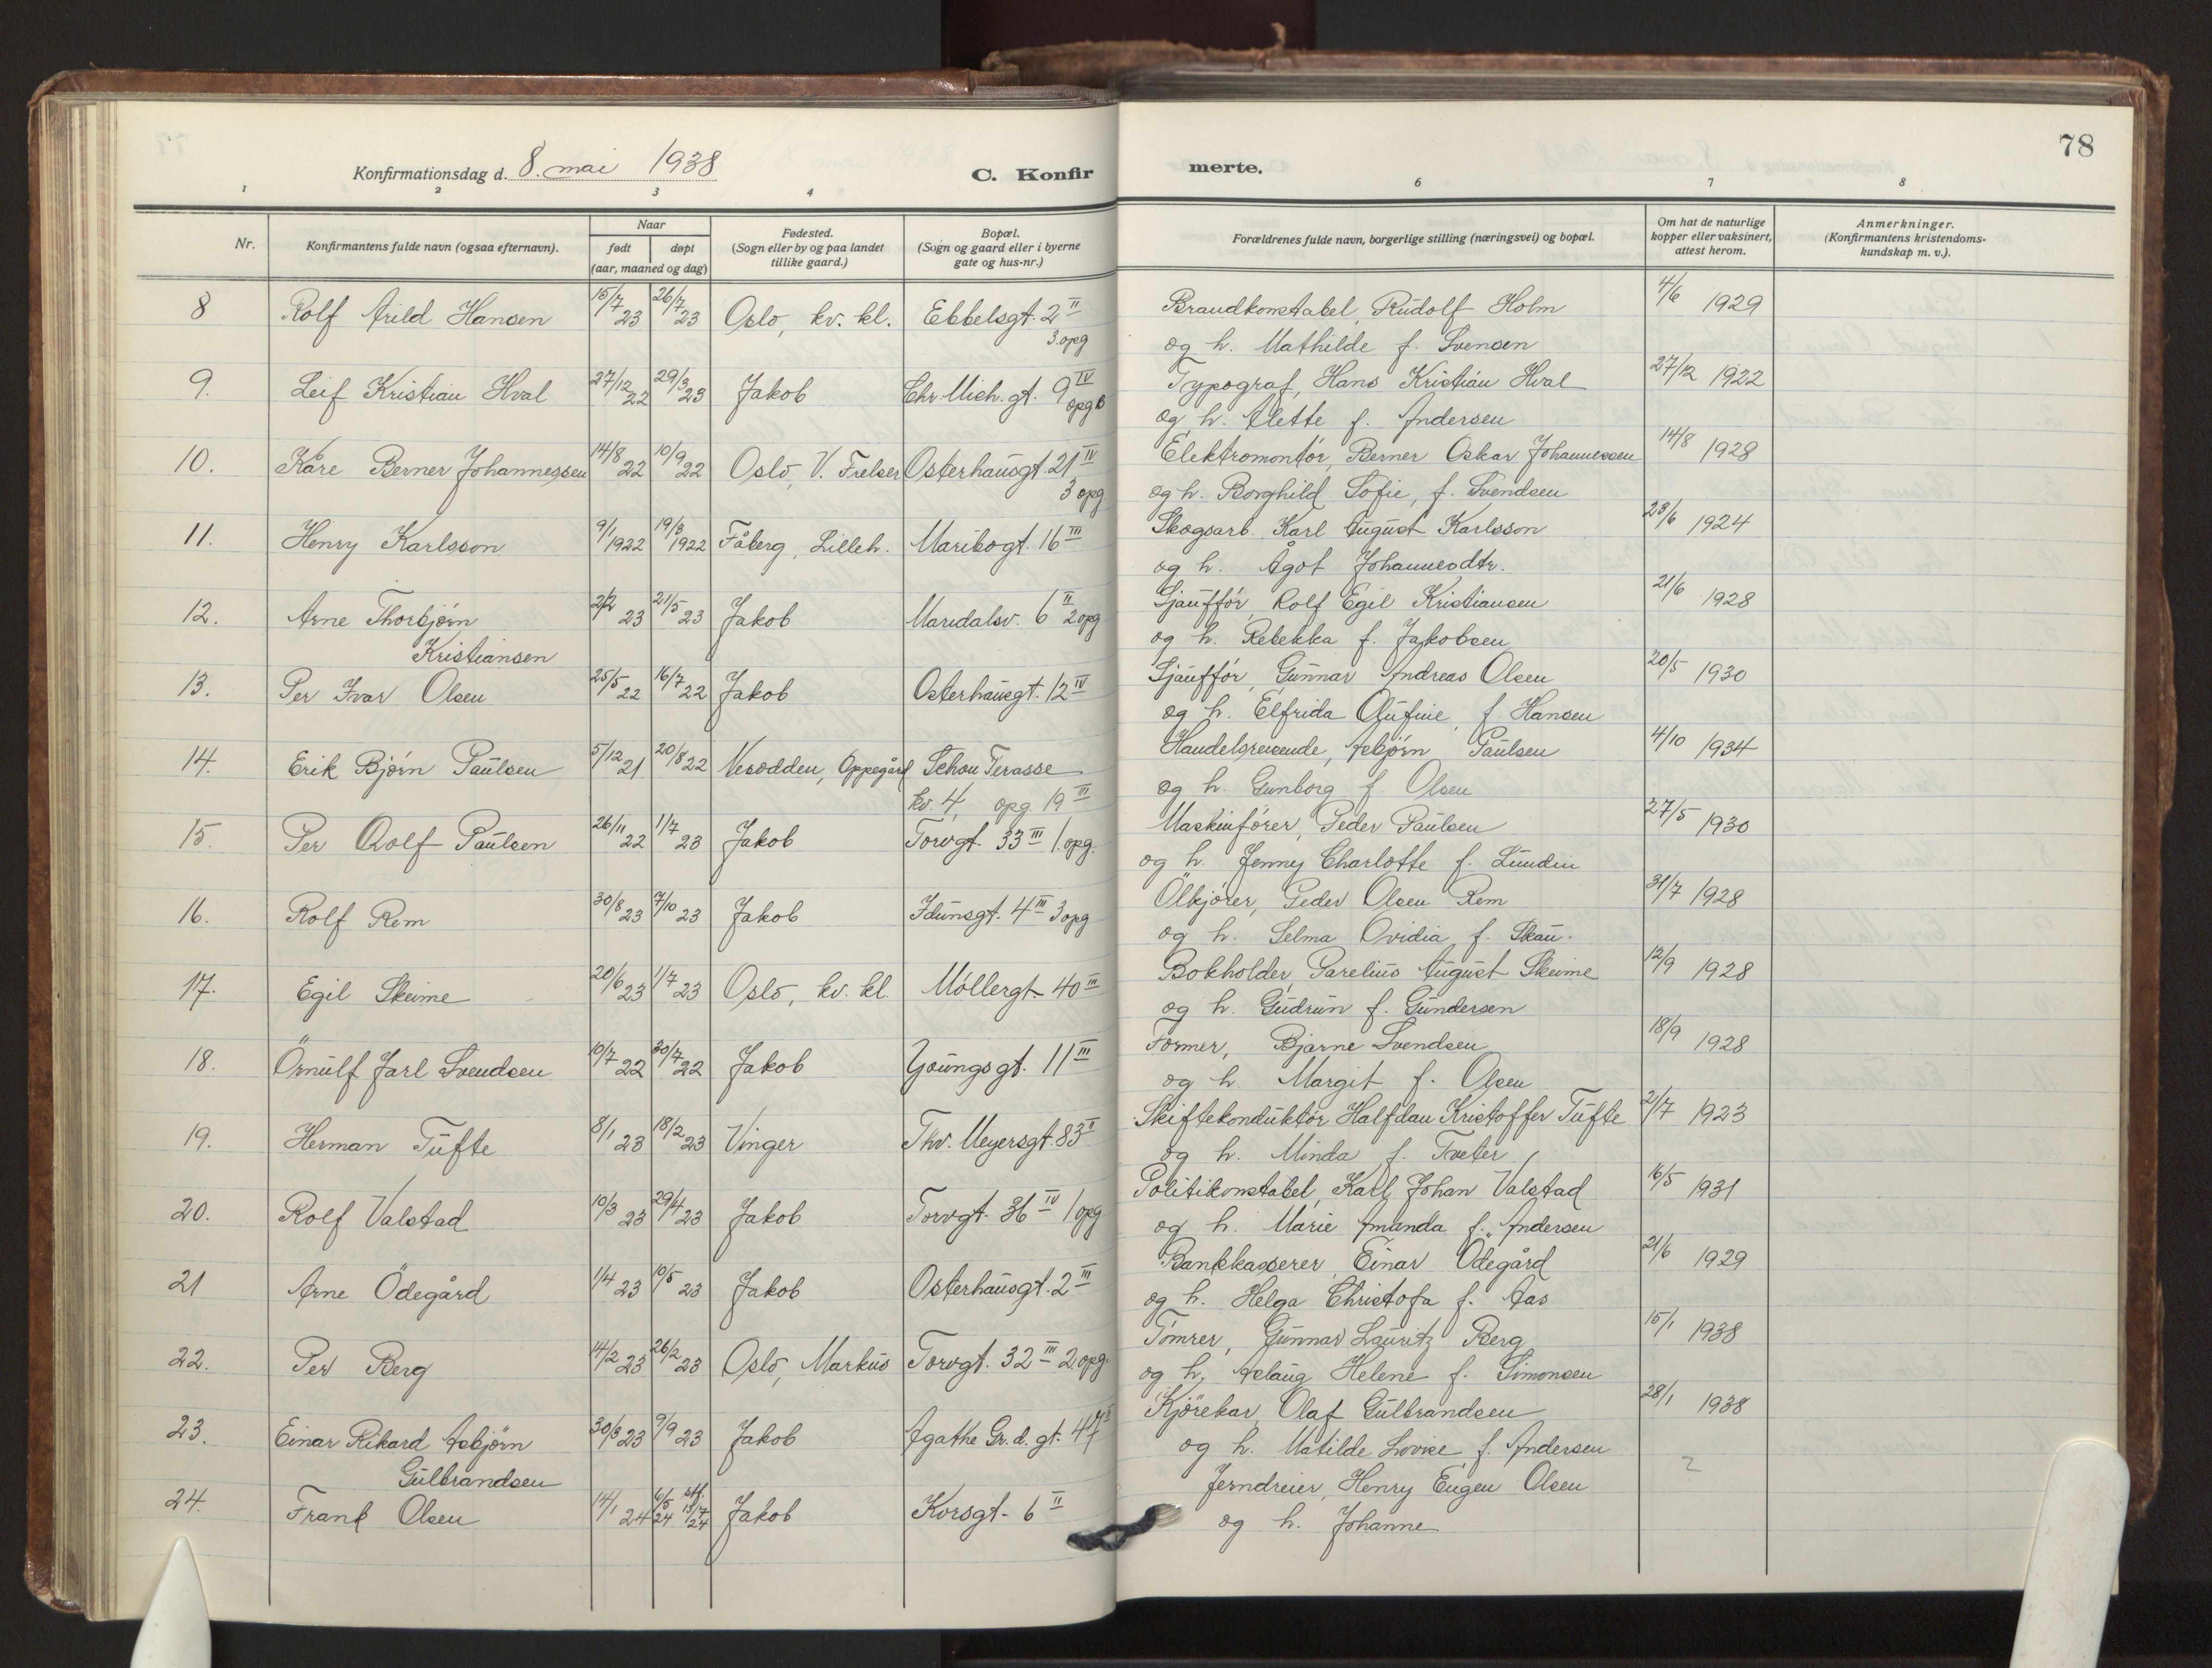 78
Konfirmationsdag d. 8. mai 1938
C. Konfir merte.
1 2 3 4 6 7 8
Nr.
Konfirmantens fulde navn (ogsaa efternavn).
Naar
født døpt
(aar, maaned og dag)
Fødested.
(Sogn eller by og paa landet
tillike gaard.)
Bopæl.
(Sogn og gaard eller i byerne
gate og hus-nr.)
Forældrenes fulde navn, borgerlige stilling (næringsvei) og bopæl.
Om hat de naturlige
kopper eller vaksinert,
attest herom.
Anmerkninger.
(Konfirmantens kristendoms-
kundskap m. v.).
8 Rolf Arild Hansen 15/7 23 26/7 23 Oslo, kv. kl. Ebbelsgt. 2 II Brandkonstabel, Rudolf Holm 4/6 1929
3. opg og h. Mathilde f. Svensen
9. Leif Kristian Hval 27/12 22 29/3 23 Jakob Chr. Mich. gt. 9 IV opg B Typograf, Hans Kristian Hval 27/12 1922
og h. Alette f. Andersen
10. Kåre Berner Johannessen 14/8 22 10/9 22 Oslo, V. Frelser Osterhausgt. 21 IV Elektromontör, Berner Oskar Johannessen 14/8 1928
3 opg. og h. Borghild Sofie, f. Svendsen
11. Henry Karlsson 9/1 1922 19/3 1922 Fåberg, Lilleh. Maribogt. 16 III Skogsarb. Karl August Karlsson 23/6 1924
og h. Ågot Johannesdtr.
12. Arne Thorbjørn 2/2 23 21/5 23 Jakob Maridalsv. 6 II 2 opg Sjåufför, Rolf Egil Kristiansen 21/6 1928
Kristiansen og h. Rebekka f. Jakobsen
13. Per Ivar Olsen 25/5 22 16/7 22 Jakob Osterhausgt. 12 IV Sjaufför, Gunnar Andreas Olsen 20/5 1930
og h. Elfrida Olufine, f. Hansen
14. Erik Bjørn Paulsen 5/12 21 20/8 22 Nesodden, Oppegård Schou Terasse Handelsreisende, Asbjørn Paulsen 4/10 1934
kv. 4, opg. 19 III og h. Gunborg f. Olsen
15. Per Rolf Paulsen 26/11 22 1/7 23 Jakob Torvgt. 33 III 1. opg. Maskinförer, Peder Paulsen 27/5 1930
og h. Jenny Charlotte f. Lundin
16. Rolf Rem 30/8 23 7/10 23 Jakob Idunsgt. 4 III 3 opg Ölkjörer, Peder Olsen Rem 31/7 1928
og h. Selma Ovidia f. Skau.
17. Egil Skeime 20/6 23 1/7 23 Oslo, kv. kl. Möllergt. 40 III Bokholder, Sarelius August Skeime 12/9 1928
og h. Gudrun f. Gundersen
18. Örnulf Jarl Svendsen 10/7 22 30/7 22 Jakob Youngsgt. 11 III Former, Bjarne Svendsen 18/9 1928
og h. Margit f. Olsen
19. Herman Tufte 8/1 23 18/2 23 Vinger Thv. Meyersgt. 83 II Skiftekonduktör Halfdan Kristoffer Tufte 2/7 1923
og h. Minda f. Tveter
20. Rolf Valstad 10/3 23 29/4 23 Jakob Torvgt. 36 IV 1 opg Politikonstabel, Karl Johan Valstad 16/5 1931
og h. Marie Amanda f. Andersen
21 Arne Ödegård 1/4 23 10/5 23 Jakob Osterhausgt. 2 III Bankkasserer, Einar Ödegård 21/6 1929
og h. Helga Christofa f. Aas
22. Per Berg 14/2 23 26/2 23 Oslo, Markus Torvgt. 32 III 2. opg. Tömrer, Gunnar Lauritz Berg 15/1 1938
og h. Aslaug Helene f. Simonsen
23. Einar Rikard Asbjörn 30/3 23 9/9 23 Jakob Agathe Gr. d. gt. Kjörekar, Olaf Gulbrandsen 28/1 1938
Gulbrandsen og h. Matilde Lovise f. Andersen
24. Frank Olsen 14/1 24 6/5 24 Jakob Korsgt. 6 II Jerndreier, Henry Eugen Olsen ?
og h. Johanne